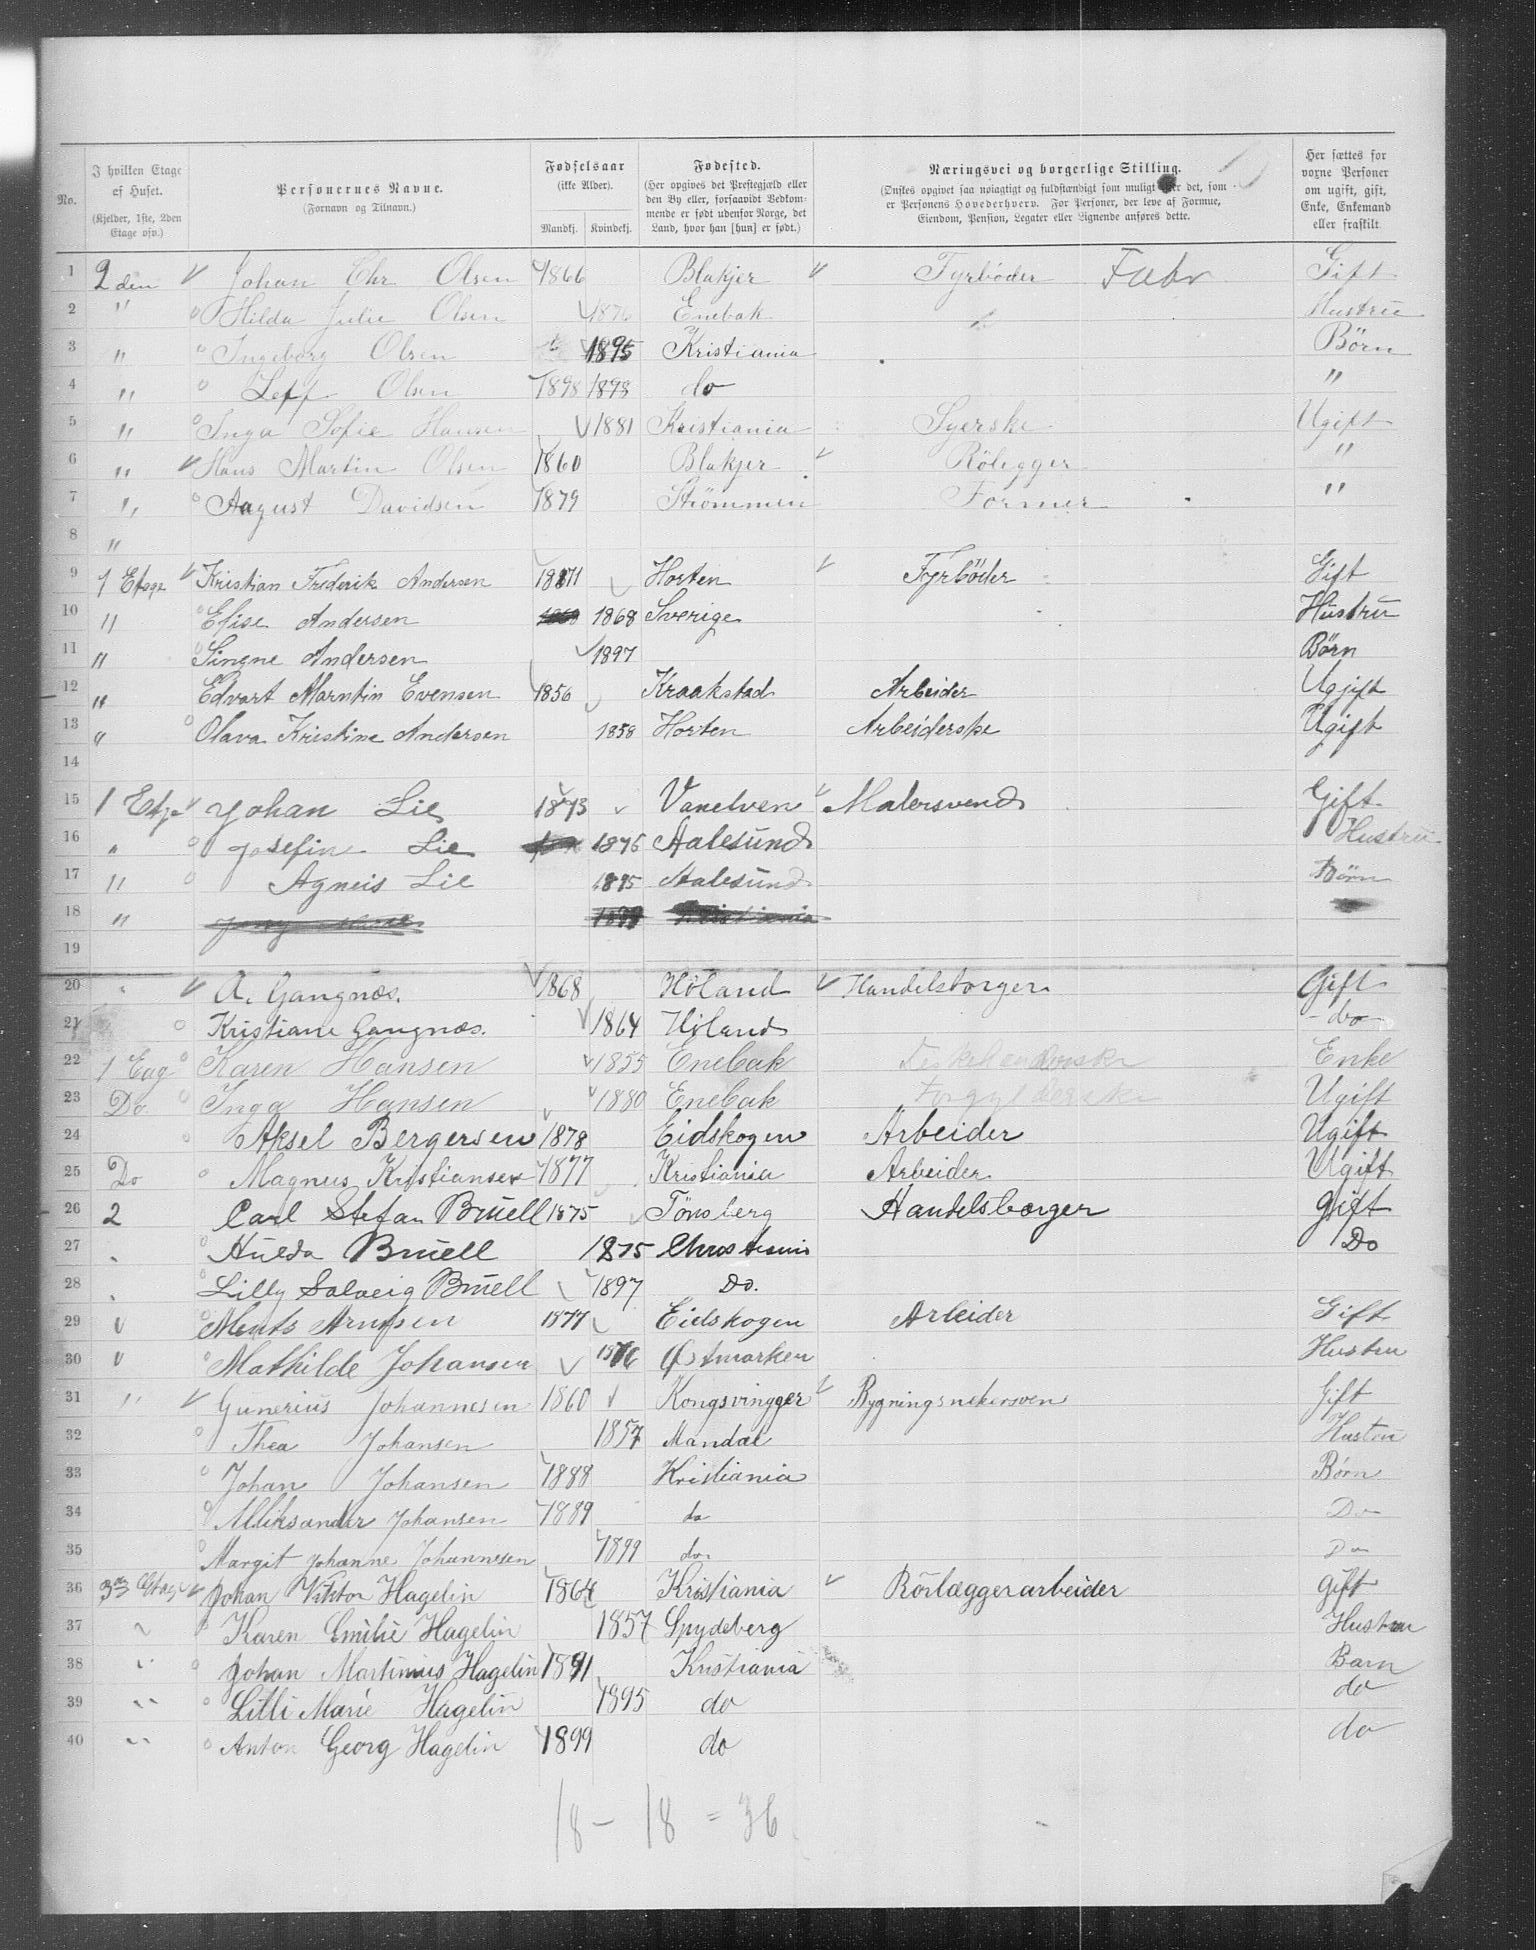 No.
I hvilken Etage af Huset. (Kjelder, 1ste, 2den Etage osv.)
Personernes Navne. (Fornavn og Tilnavn.)
Fødselsaar (ikke Alder). Mandkj. Kvindekj.
Fødested. (Her opgives det Prestegjæld eller den By eller, forsaavidt Vedkommende er født udenfor Norge, det Land, hvor han [hun] er født.)
Næringsvei og borgerlige Stilling. (Ønskes opgivet saa nøiagtigt og fuldstændigt som muligt det, som er Personens Hovederhverv. For Personer, der leve af Formue, Eiendom, Pension, Legater eller Lignende anføres dette.
Her sættes for voxne Personer om ugift, gift, Enke, Enkemand eller fraskilt
1 2den Johan Chr Olsen 1866 Blakjer Fyrbøder Fabr Gift
2 " Hilda Julie Olsen 1876 Enebak Hustru
3 " Ingeborg Olsen 1895 Kristiania Børn
4 " Leff Olsen 1898 1898 do "
5 " Inga Sofie Hansen 1881 Kristiania Syerske Ugift
6 " Hans Martin Olsen 1860 Blakjer Rölegger "
7 " August Davidsen 1879 Strømmen Former "
8 "
9 1 Etage Kristian Frederik Andersen 1871 Horten Fyrbøder Gift
10 " Elise Andersen 1868 Sverige Hustru
11 " Singne Andersen 1897 Børn
12 " Edvart Marntin Evensen 1856 Kraakstad Arbeider Ugjift
13 " Olava Kristine Andersen 1858 Horten Arbeiderske Ugift
14
15 1 Etge Johan Lie 1873 Vanelven Malersvend Gift
16 " Josefine Lie 1876 Aalesund Hustru
17 " Agneis Lie 1895 Aalesund Børn
18 "
19
20 " A. Gangnæs. 1868 Höland Handelsborger Gift
21 Kristiane Gangnæs. 1864 Höland do
22 1 Etag Karen Hansen 1855 Enebak Enke
23 Do Inga Hansen 1880 Enebak Forgylderske Ugift
24 Aksel Bergersen 1878 Eidskogen Arbeider Ugift
25 Do Magnus Kristiansen 1877 Kristiania Arbeider Ugift
26 2 Carl Stefan Bruell 1875 Tönsberg Handelsborger gift
27 Hulda Bruell 1875 Christiania Do
28 Lilly Solveig Bruell 1897 Do.
29 " Ments Arnesen 1877 Eidskogen Arbeider Gift
30 " Mathilde Johansen 1876 Østmarken Hustru
31 " Gunerius Johannesen 1860 Kongsvingger Bygningsnekersven Gift
32 Thea Johansen 1857 Mandal Hustru
33 Johan Johansen 1888 Kristiania Børn
34 Alliksander Johansen 1889 do Do
35 Margit Johanne Johannesen 1899 do Do
36 3die Etage Johan Viktor Hagelin 1864 Kristiania Rörlæggerarbeider gift
37 " Karen Emilie Hagelin 1857 Spydeberg Hustru
38 " Johan Martinius Hagelin 1891 Kristiania Barn
39 " Lilli Marie Hagelin 1895 do do
40 " Anton Georg Hagelin 1899 do do
18 – 18 = 36